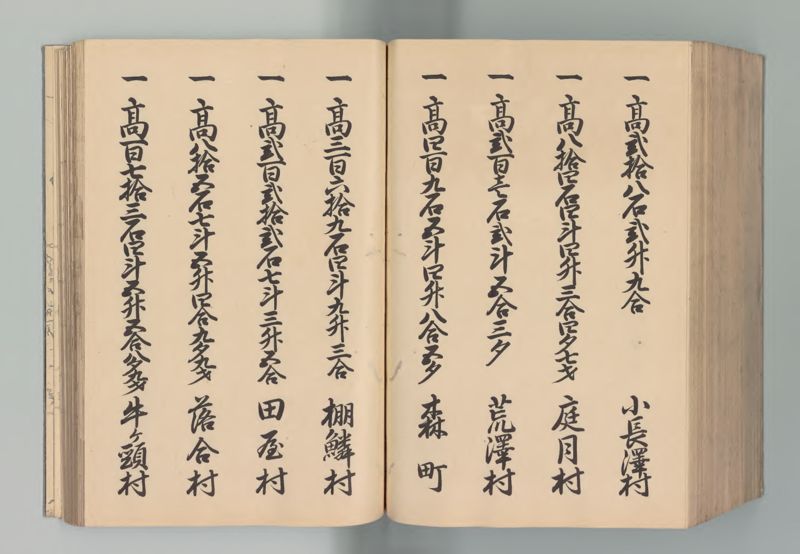 一 高弐拾八石弐升九合 小長澤村
一 高八拾四石四斗四升三合四夕七才 庭月村
一 高弐百壱石弐斗五合三夕 荒澤村
一 高四百九石五斗四升八合五夕 森町
一 高三百六拾九石四斗九升三合 棚鱗村
一 高弐百弐拾弐石七斗三升五合 田屋村
一 高八拾五石七斗五升四合九夕九才 落合村
一 高百七拾三石四斗五升五合 牛ヶ頭村